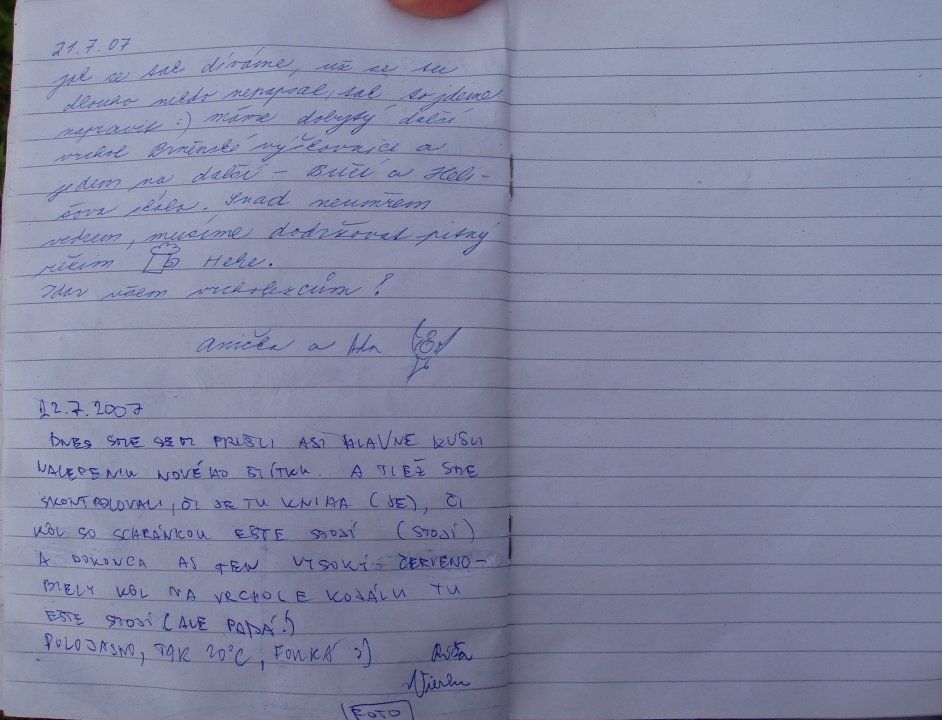 21.7.07
jak se tak díváme, už se tu
dlouho nikdo nepapsal, tak to jdeme
napravit :) máme dobytý další
vrchol Brněnské výškovnice a
jedem na další - Býčí a Heli-
šova skála. Snad neumřem
vedrem, musíme dodržovat pitný
režim Hehe.
Zdar všem vrcholezcům!
Anička a Ada
22.7.2007
DNES SME SEM PRIŠLI ASI HLAVNE KVŠLI
NALEPENIU NOVÉHO ŠTÍTKU. A TIEŽ SME
SKONTROLOVALI, ČI JE TU KNIHA (JE), ČI
KÔL SO SCHRÁNKOU EŠTE STOJÍ (STOJÍ)
A DOKONCA AJ TEN VYSOKÝ ČERVENO-
BIELY KÔL NA VRCHOLE KOJÁLU TU
EŠTE STOJÍ (ALE PADÁ!)
POLOJASNO, TAK 20°C, FÚKA :)
Vierka
FOTO